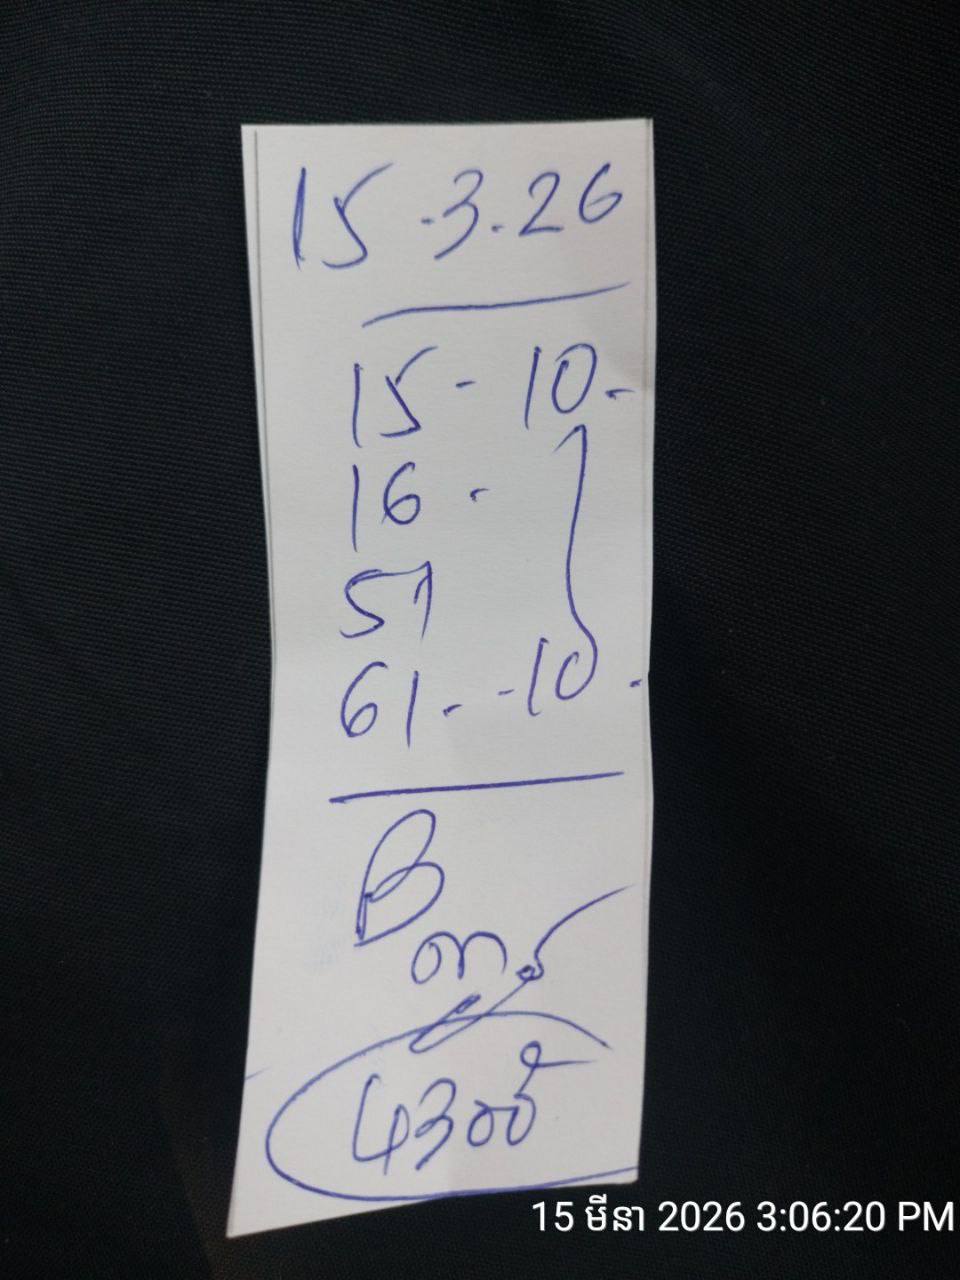 15.3.26
15 - 10.
16 -
57
61. - 10.
B
4300
15 មីនា 2026 3:06:20 PM